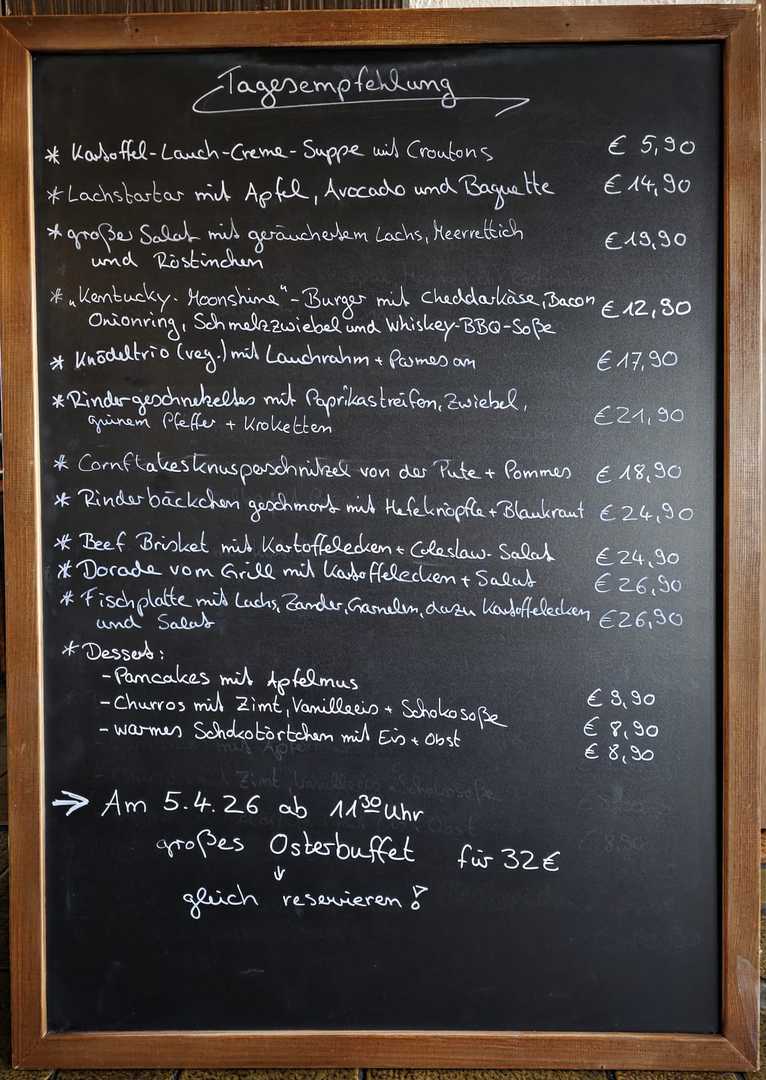 Tagesempfehlung
* Kartoffel-Lauch-Creme-Suppe mit Croutons € 5,90
* Lachstartar mit Apfel, Avocado und Baguette € 14,90
* großer Salat mit geräuchertem Lachs, Meerrettich € 19,90
und Röstinchen
* „Kentucky-Moonshine"-Burger mit Cheddarkäse, Bacon € 12,90
Onionring, Schmelzzwiebel und Whiskey-BBQ-Soße
* Knödeltrio (veg.) mit Lauchrahm + Parmesan € 17,90
* Rindergeschnetzeltes mit Paprikastreifen, Zwiebel, € 21,90
grünem Pfeffer + Kroketten
* Cornflakesknusperschnitzel von der Pute + Pommes € 18,90
* Rinderbäckchen geschmort mit Hefeknöpfle + Blaukraut € 24,90
* Beef Brisket mit Kartoffelecken + Coleslaw-Salat € 24,90
* Dorade vom Grill mit Kartoffelecken + Salat € 26,90
* Fischplatte mit Lachs, Zander, Garnelen, dazu Kartoffelecken € 26,90
und Salat
* Dessert:
- Pancakes mit Apfelmus € 9,90
- Churros mit Zimt, Vanilleeis + Schokosoße € 8,90
- warmes Schokotörtchen mit Eis + Obst € 8,90
→ Am 5.4.26 ab 11 30 Uhr
großes Osterbuffet für 32 €
↓
gleich reservieren!